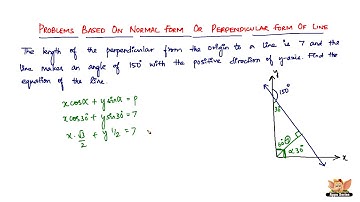 PROBLEMS BASED ON NORMAL FORM OR PERPENDICULAR FORM OF LINE
The length of the perpendicular from the origin to a line is 7 and the
line makes an angle of 150° with the positive direction of y-axis. Find the
equation of the line.
x cosα + y sinα = p
x cos30° + y sin30° = 7
x·√3/2 + y 1/2 = 7
Y
R
150°
30°
60°
α 30°
X